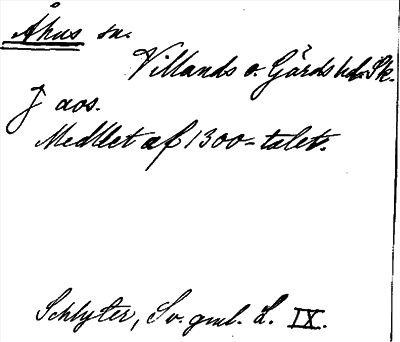 Åhus sn.
Villands o. Gärds hd. Sk.
J aos.
Medlet af 1300-talet.
Schlyter, Sv. gml. L. IX.